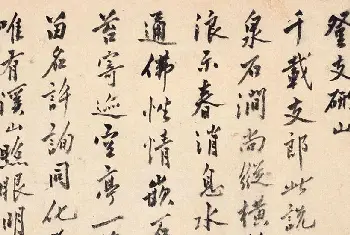 登支硎山
千載支郎此說
泉石澗尚縱橫
浪示春消息水
通佛性情嵌石
苔寄巡空亭一
留名許詢同化
唯有溪山照眼明